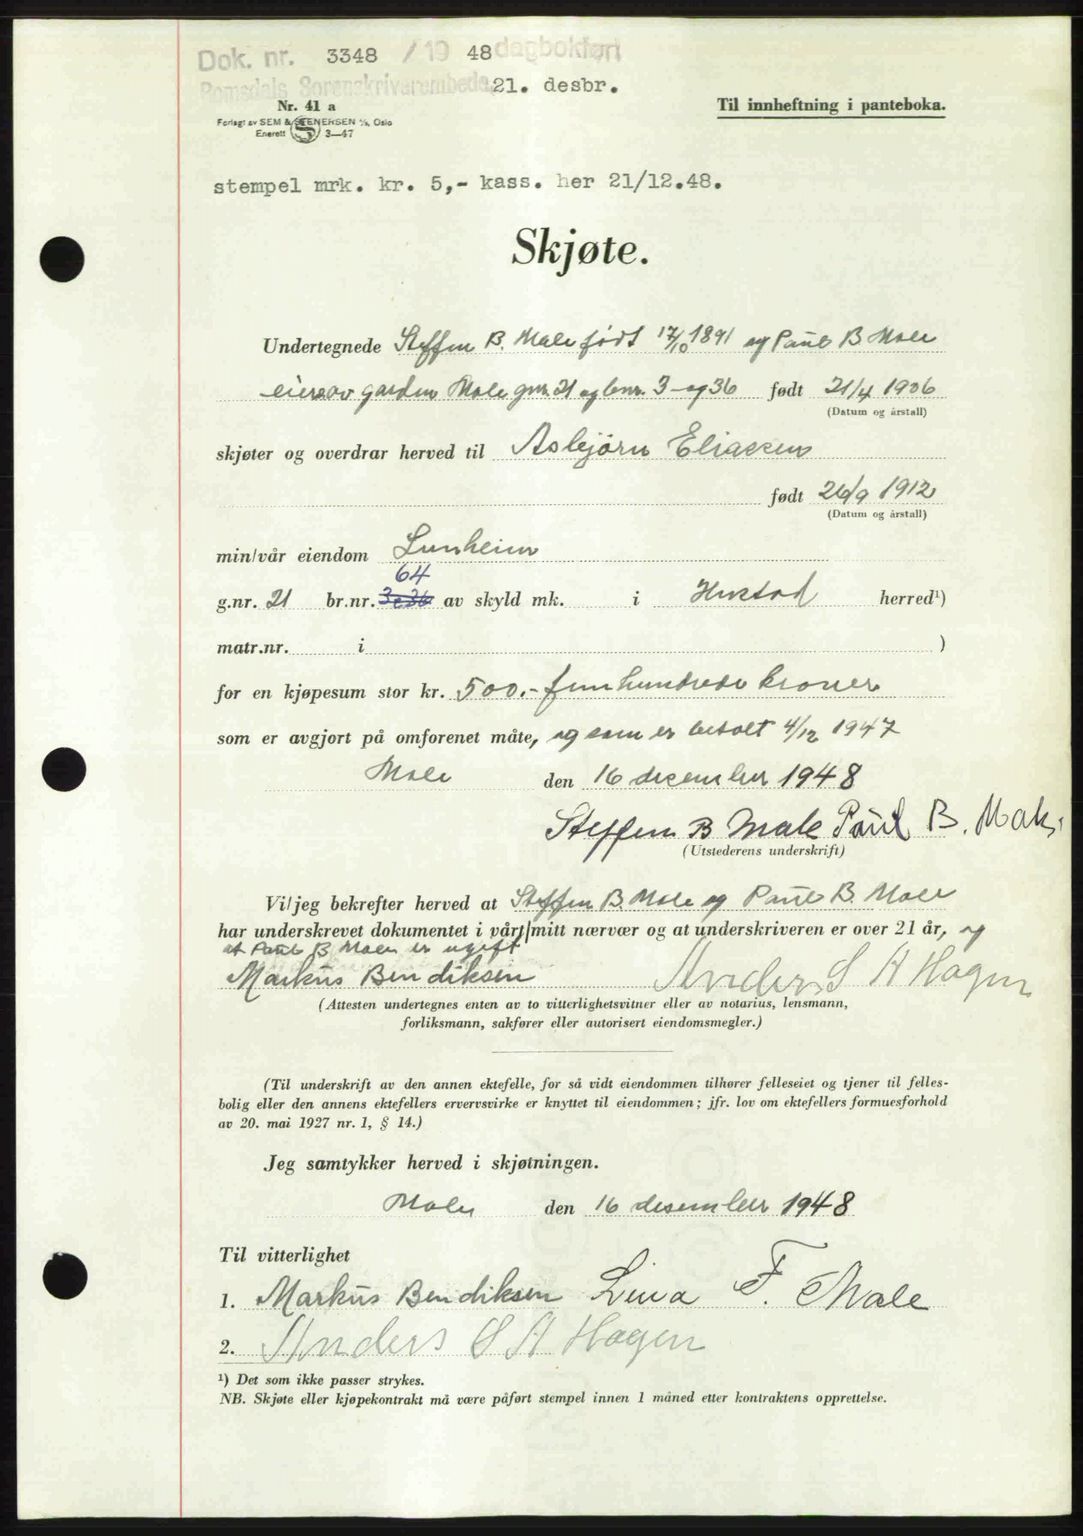 Dok. nr. 3348 / 19 48 dagbokført
Romsdals Sorenskriverembede 21. desbr.
Nr. 41 a
Forlagt av SEM & STENERSEN A/S, Oslo
Enerett 3—47
Til innheftning i panteboka.
stempel mrk. kr. 5,- kass. her 21/12.48.
Skjøte.
Undertegnede Steffen B. Male født 17/10 1891 og Paul B Male
eiere av garden Male gnr. 21 og bnr. 3 og 36 født 21/4 1906
(Datum og årstall)
skjøter og overdrar herved til Asbjørn Eliassen
født 26/9 1912
(Datum og årstall)
min/vår eiendom Lunheim
64
g.nr. 21 br.nr. 3 o 36 av skyld mk. i Hustad herred¹)
matr.nr. i )
for en kjøpesum stor kr. 500.- femhundrede kroner
som er avgjort på omforenet måte, og som er betalt 4/12 1947
Male den 16 desember 1948
Steffen B Male Paul B. Male
(Utstederens underskrift)
Vi/jeg bekrefter herved at Steffen B. Male og Paul B. Male
har underskrevet dokumentet i vårt/mitt nærvær og at underskriveren er over 21 år, og
at Paul B Male er ugift
Markus Bendiksen Anders S A Hagen
(Attesten undertegnes enten av to vitterlighetsvitner eller av notarius, lensmann,
forliksmann, sakfører eller autorisert eiendomsmegler.)
(Til underskrift av den annen ektefelle, for så vidt eiendommen tilhører felleseiet og tjener til felles-
bolig eller den annens ektefellers ervervsvirke er knyttet til eiendommen; jfr. lov om ektefellers formuesforhold
av 20. mai 1927 nr. 1, § 14.)
Jeg samtykker herved i skjøtningen.
Male den 16 desember 1948
Til vitterlighet
1. Markus Bendiksen Lina F. Male
2. Anders S A Hagen
¹) Det som ikke passer strykes.
NB. Skjøte eller kjøpekontrakt må være påført stempel innen 1 måned etter kontraktens opprettelse.